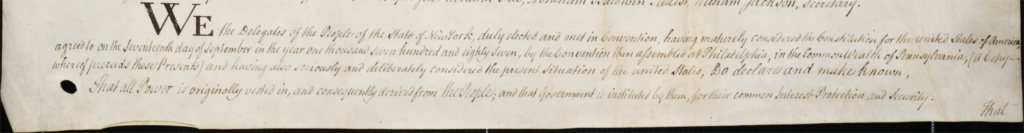 Abraham Baldwin. Attest, William Jackson, Secretary.
WE the Delegates of the People of the State of New York, duly elected and met in Convention, having maturely considered the Constitution for the united States of America,
agreed to on the seventeenth day of September in the year one thousand seven hundred and eighty seven, by the Convention then assembled at Philadelphia, in the Common Wealth of Pennsylvania, (a Copy
whereof precedes these Presents) and having also seriously and deliberately considered the present Situation of the united States, Do declare and make known,
That all Power is originally vested in, and consequently derived from the People; and that Government is instituted by them, for their common Interest Protection and Security.
That